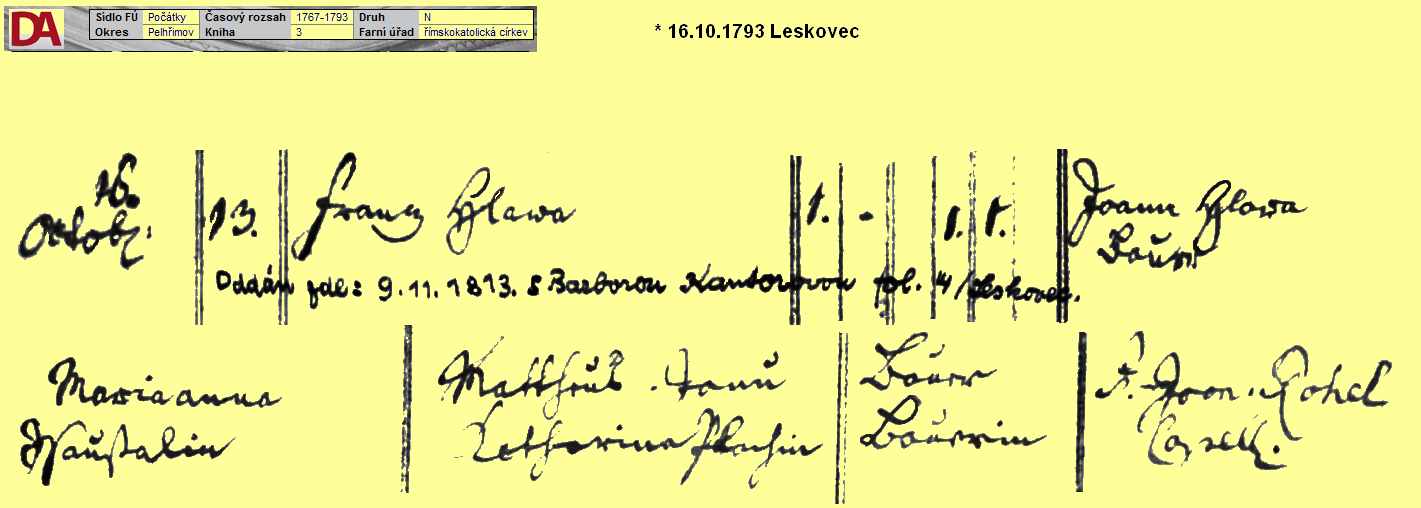 Sídlo FÚ Počátky Časový rozsah 1767-1793 Druh N
Okres Pelhřimov Kniha 3 Farní úřad římskokatolická církev
* 16.10.1793 Leskovec
16. Octob: 13. Franz Hlawa 1. - 1. 1. Joann Hlawa
Bauer
Oddán zde: 9.11.1813. s Barborou Kantorovou fol. 4/Leskovec.
Marianna Mattheus Bauer F. Joan.
Catharina Bauerin